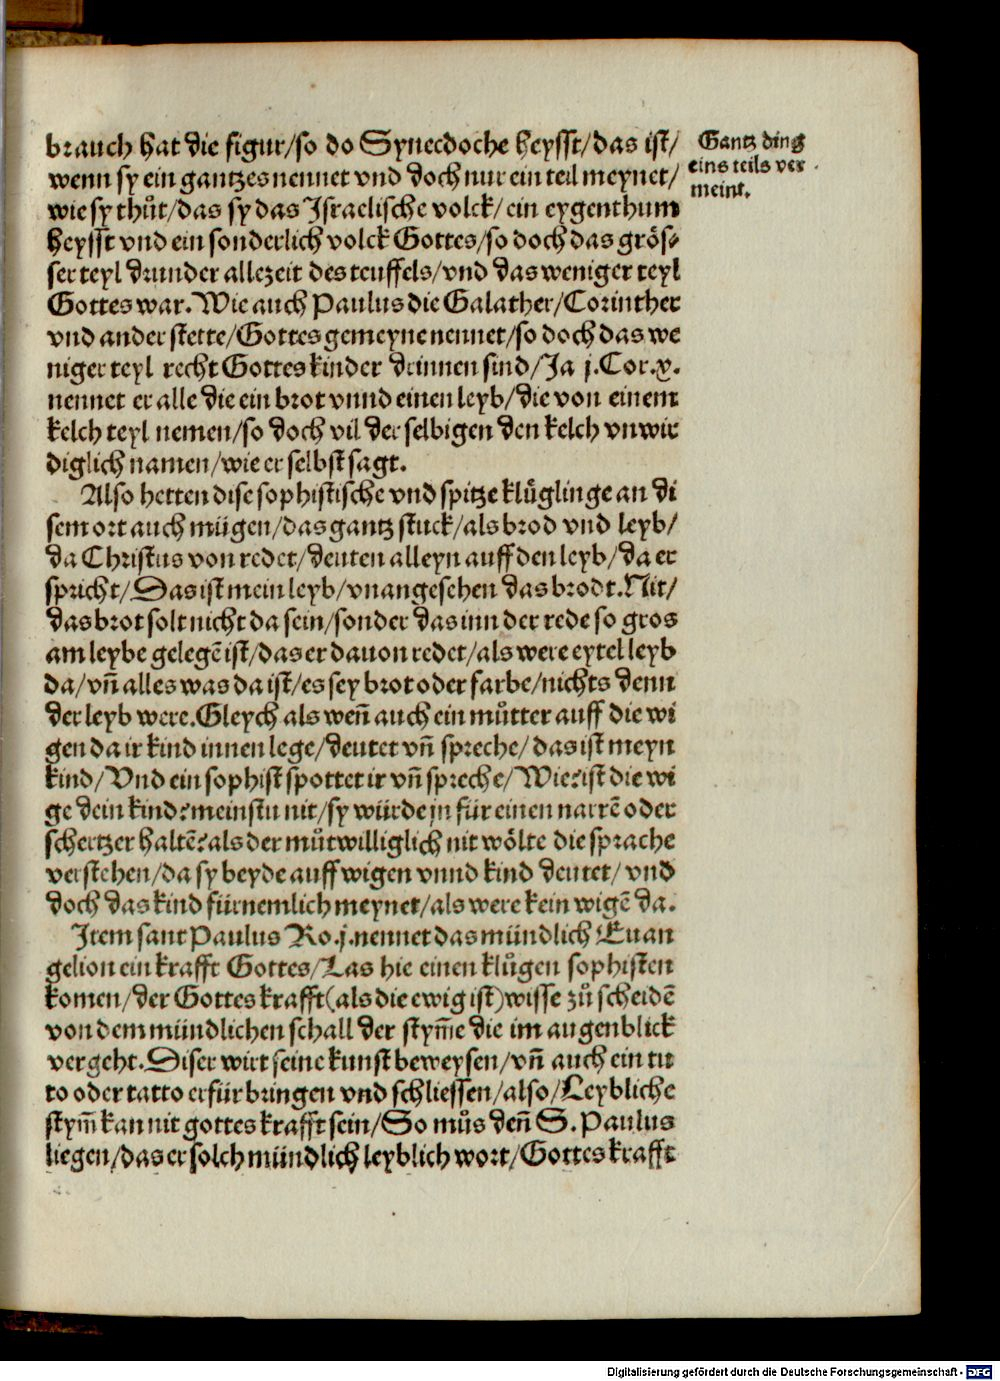 brauch hat die figur/so do Synecdoche heysst/das ist/
wenn sy ein gantzes nennet vnd doch nur ein teil meynet/
wie sy thůt/das sy das Israelische volck/ein eygenthum
heysst vnd ein sonderlich volck Gottes/so doch das grös-
ser teyl drunder allezeit des teuffels/vnd das weniger teyl
Gottes war. Wie auch Paulus die Galather/Corinther
vnd ander stette/Gottes gemeyne nennet/so doch das we
niger teyl recht Gottes kinder drinnen sind/Ja j.Cor.x.
nennet er alle die ein brot vnnd einen leyb/die von einem
kelch teyl nemen/so doch vil der selbigen den kelch vnwir
diglich namen/wie er selbst sagt.
Gantz ding
eins teils ver
meint.
Also hetten dise sophistische vnd spitze klüglinge an di
sem ort auch mügen/das gantz stuck/als brod vnd leyb/
da Christus von redet/deuten alleyn auff den leyb/da er
spricht/Das ist mein leyb/vnangesehen das brodt. Nit/
das brot solt nicht da sein/sonder das inn der rede so gros
am leybe gelegē ist/das er dauon redet/als were eytel leyb
da/vn̄ alles was da ist/es sey brot oder farbe/nichts denn
der leyb were. Gleych als wen̄ auch ein můtter auff die wi
gen da ir kind innen lege/deutet vn̄ spreche/das ist meyn
kind/Vnd ein sophist spottet ir vn̄ spreche/Wie? ist die wi
ge dein kind? meinstu nit/sy würde jn für einen narrē oder
schertzer haltē? als der můtwilliglich nit wölte die sprache
verstehen/da sy beyde auff wigen vnnd kind deutet/vnd
doch das kind fürnemlich meynet/als were kein wigē da.
Item sant Paulus Ro.j.nennet das mündlich Euan
gelion ein krafft Gottes/Las hie einen klůgen sophisten
komen/der Gottes krafft(als die ewig ist)wisse zů scheidē
von dem mündlichen schall der stym̄e die im augenblick
vergeht. Diser wirt seine kunst beweysen/vn̄ auch ein tu
to oder tatto erfür bringen vnd schliessen/also/Leybliche
stym̄ kan nit gottes krafft sein/So můs den̄ S. Paulus
liegen/das er solch mündlich leyblich wort/Gottes krafft
Digitalisierung gefördert durch die Deutsche Forschungsgemeinschaft - DFG